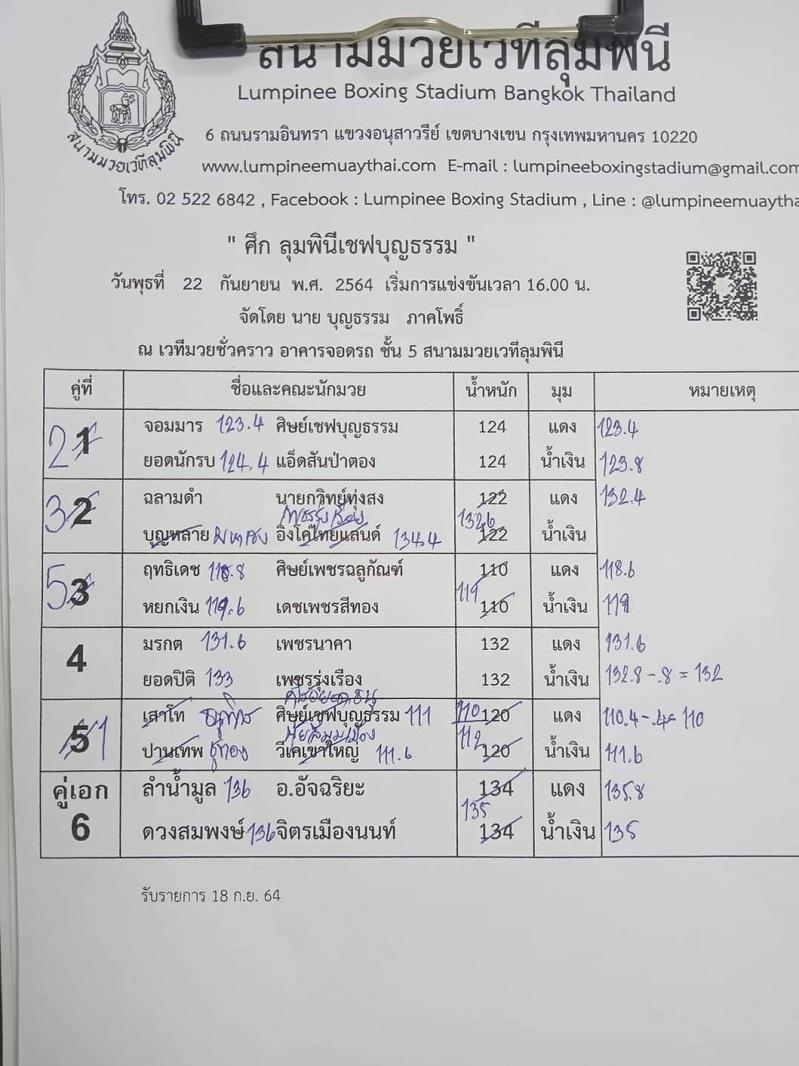 สนามมวยเวทีลุมพินี
Lumpinee Boxing Stadium Bangkok Thailand
6 ถนนรามอินทรา แขวงอนุสาวรีย์ เขตบางเขน กรุงเทพมหานคร 10220
www.lumpineemuaythai.com E-mail : lumpineeboxingstadium@gmail.com
โทร. 02 522 6842 , Facebook : Lumpinee Boxing Stadium , Line : @lumpineemuaytha
สนามมวยเวทีลุมพินี
" ศึก ลุมพินีเชฟบุญธรรม "
วันพุธที่ 22 กันยายน พ.ศ. 2564 เริ่มการแข่งขันเวลา 16.00 น.
จัดโดย นาย บุญธรรม ภาคโพธิ์
ณ เวทีมวยชั่วคราว อาคารจอดรถ ชั้น 5 สนามมวยเวทีลุมพินี
คู่ที่ ชื่อและคณะนักมวย น้ำหนัก มุม หมายเหตุ
2 1 จอมมาร 123.4 ศิษย์เชฟบุญธรรม 124 แดง 123.4
ยอดนักรบ 124.4 แอ็ดสันป่าตอง 124 น้ำเงิน 123.8
3 2 ฉลามดำ นายกวิทย์ทุ่งสง 122 แดง 132.4
เพชรรุ่งเรือง 132.6
บุญหลาย อิงโค่ไทยแลนด์ 134.4 122 น้ำเงิน
5 3 ฤทธิเดช 118.8 ศิษย์เพชรฉลูกัณฑ์ 110 แดง 118.6
119
หยกเงิน 119.6 เดชเพชรสีทอง 110 น้ำเงิน 119
4 มรกต 131.6 เพชรนาคา 132 แดง 131.6
ยอดปิติ 133 เพชรรุ่งเรือง 132 น้ำเงิน 132.8 - .8 = 132
5 1 เสาโท ศิษย์เชฟบุญธรรม 111 110 120 แดง 110.4 - .4 = 110
ปานเทพ ชูทอง วีเคเขาใหญ่ 111.6 112 120 น้ำเงิน 111.6
คู่เอก 6 ลำน้ำมูล 136 อ.อัจฉริยะ 134 แดง 135.8
135
ดวงสมพงษ์ 136 จิตรเมืองนนท์ 134 น้ำเงิน 135
รับรายการ 18 ก.ย. 64